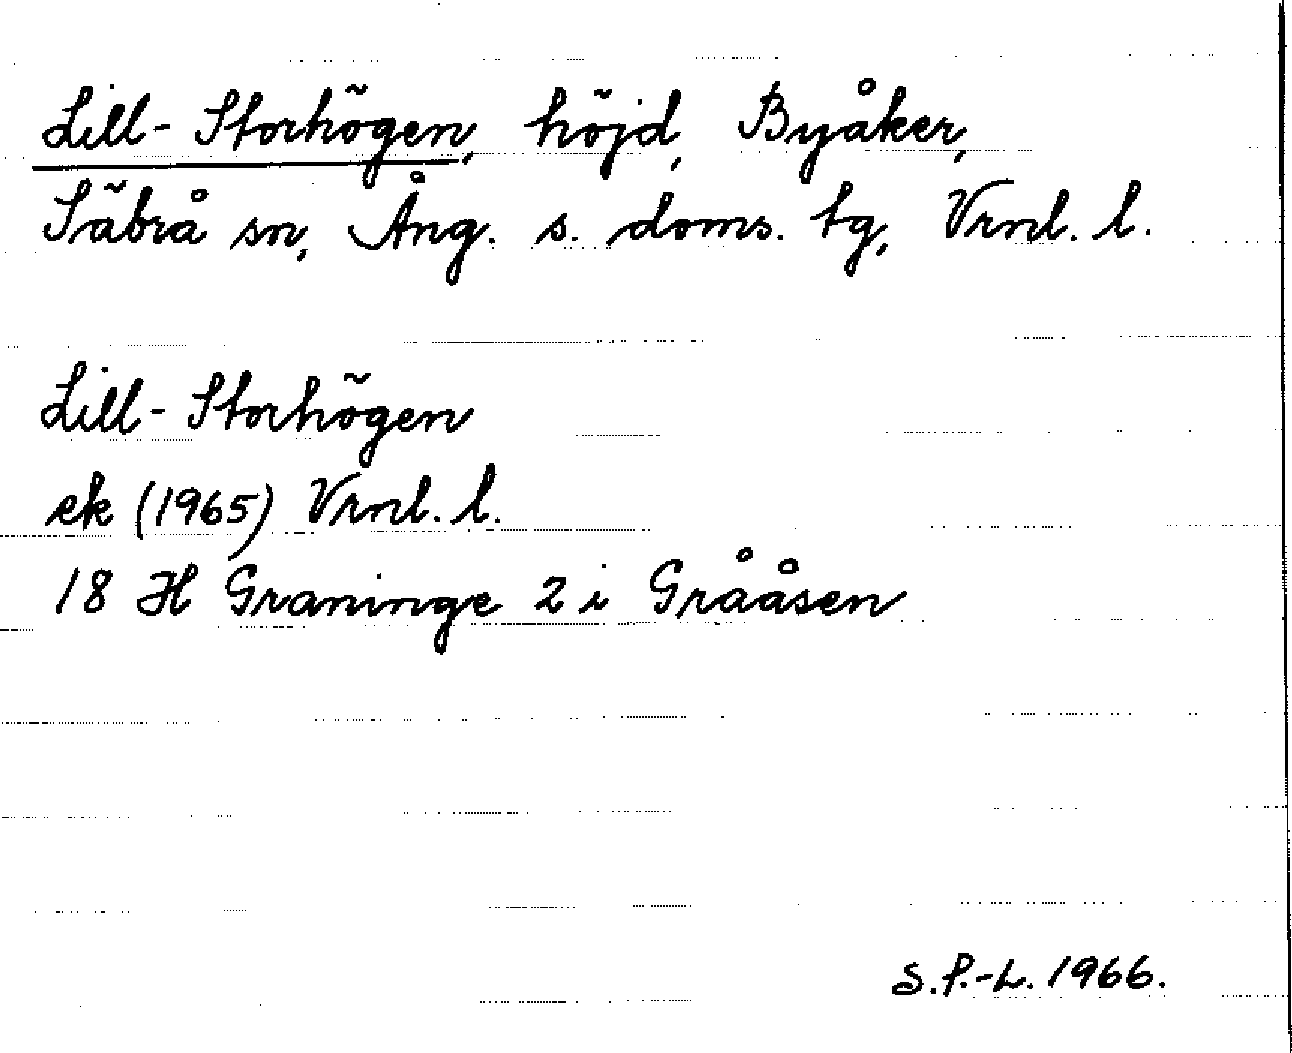 Lill-Storhögen, höjd, Byåker,
Säbrå sn, Ång. s. doms. tg, Vrnl. l.
Lill-Storhögen
ek (1965) Vrnl. l.
18 H Graninge 2 i Grååsen
S.P.-L. 1966.